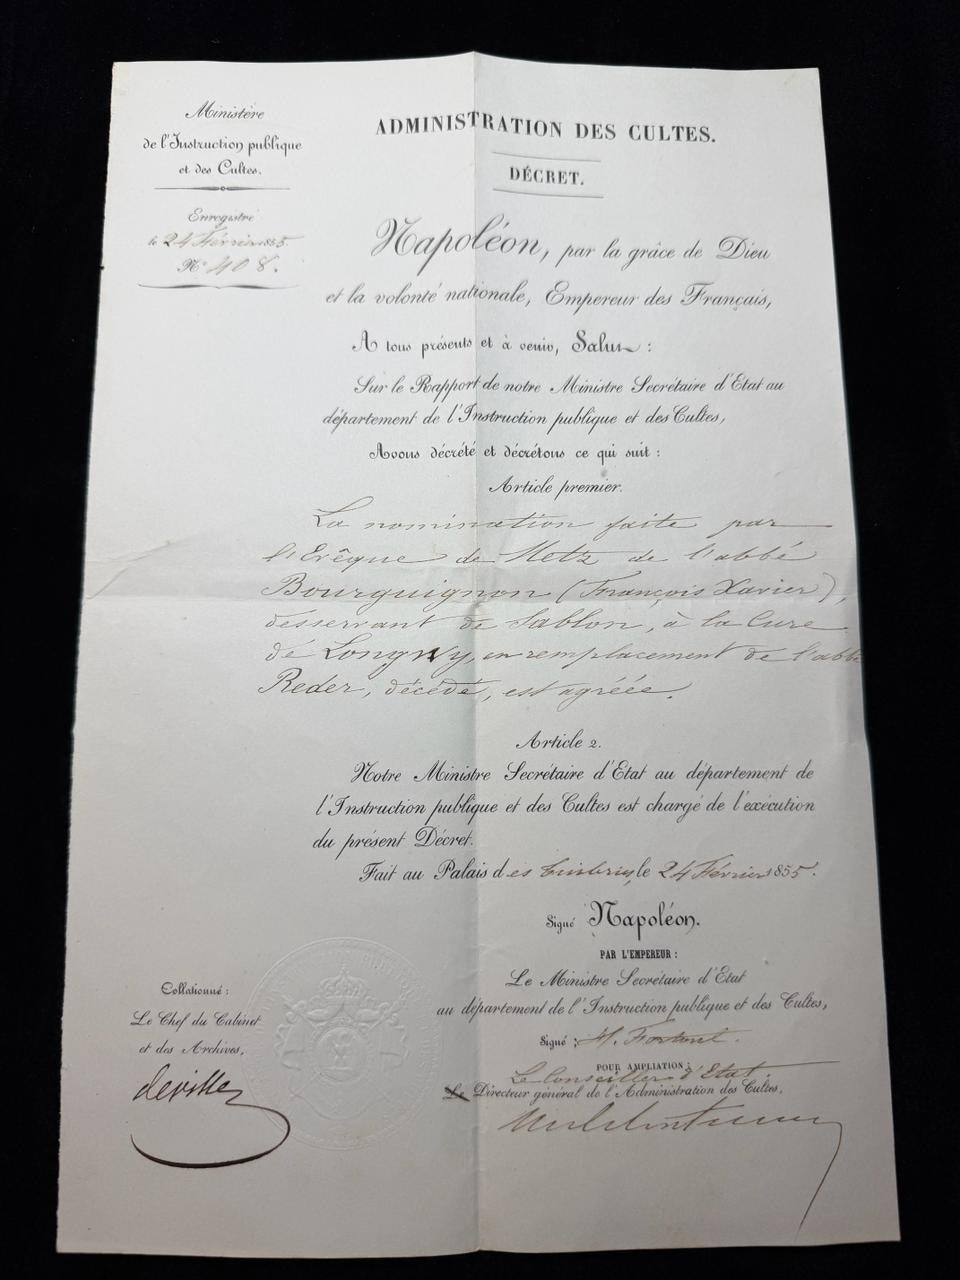 Ministère
de l'Instruction publique
et des Cultes.
Enregistré
le 24 Février 1855.
N° 408.
ADMINISTRATION DES CULTES.
DÉCRET.
Napoléon, par la grâce de Dieu
et la volonté nationale, Empereur des Français,
A tous présents et à venir, Salut :
Sur le Rapport de notre Ministre Secrétaire d'Etat au
département de l'Instruction publique et des Cultes,
Avons décrété et décrétons ce qui suit :
Article premier.
La nomination faite par
l'Evêque de Metz de l'abbé
Bourguignon (François Xavier),
desservant de Sablon, à la Cure
de Longwy, en remplacement de l'abbé
Reder, décédé, est agréée.
Article 2.
Notre Ministre Secrétaire d'Etat au département de
l'Instruction publique et des Cultes est chargé de l'exécution
du présent Décret.
Fait au Palais des Tuileries, le 24 Février 1855.
Signé Napoléon.
PAR L'EMPEREUR :
Le Ministre Secrétaire d'Etat
au département de l'Instruction publique et des Cultes,
Signé : H. Fortoul.
POUR AMPLIATION :
Le Conseiller d'Etat
Le Directeur général de l'Administration des Cultes,
Collationné :
Le Chef du Cabinet
et des Archives,
Deville